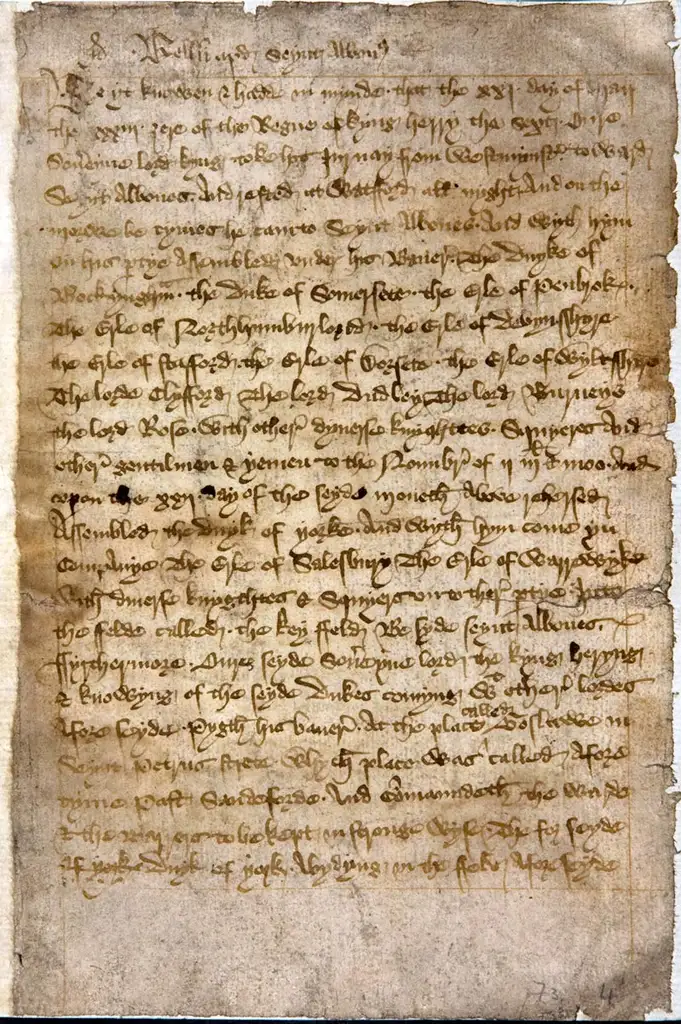 Bellum apud Seynt Albons
Be yt knowen & hadde in mynde that the xxi day of May
the xxxiii zere of the Regne of kyng herry the sext Oure
Sou'eyne lord kyng toke his Jurnay from Westmynst' toward
Seynt Albones And rested at Watford all nyght And on the
morwe be tymes he cam to Seynt Albones And wyth hym
on his p'tye Assembled under his Baner' The Duyke of
Bockyngh'm the Duke of Somersete the Erle of Penbrok
The Erle of Northhumburlond the Erle of Devynsshyre
the Erle of Stafford the Erle of Dorsete the Erle of Wyltsshyre
The lorde Clyfford The lord Dudley The lord Burneys
the lord Rose With other' dyuerse knyghttes Squyeres And
other' gentilmen & yemen to the Nombr' of ii ml & moo And
vpon the xxii day of the seyde moneth Above rehersed
Assembled the Duyk of yorke And wyth hym come yn
Companye The Erle of Salesbury The Erle of Warrewyke
with diuerse knyghtes & Squyers vn to ther' p'tye Into
the felde called the key ffeld Be syde seynt Albones
ffyrthermore Oure seyde Sou'eyne lord the kyng heryng
& knowyng of the seyde Dukes comyng wt other' lordes
Afore seyde Pygth his baner' At the place called Boslawe in
Seynt Petrus strete Whych place was called Afore
tyme Past Sandeforde And Co'maundeth the warde
& the to be kept in stronge wyse The for seyde
of yorke Duyk of york Abydyng in the ffeld Afore seyde
73 4